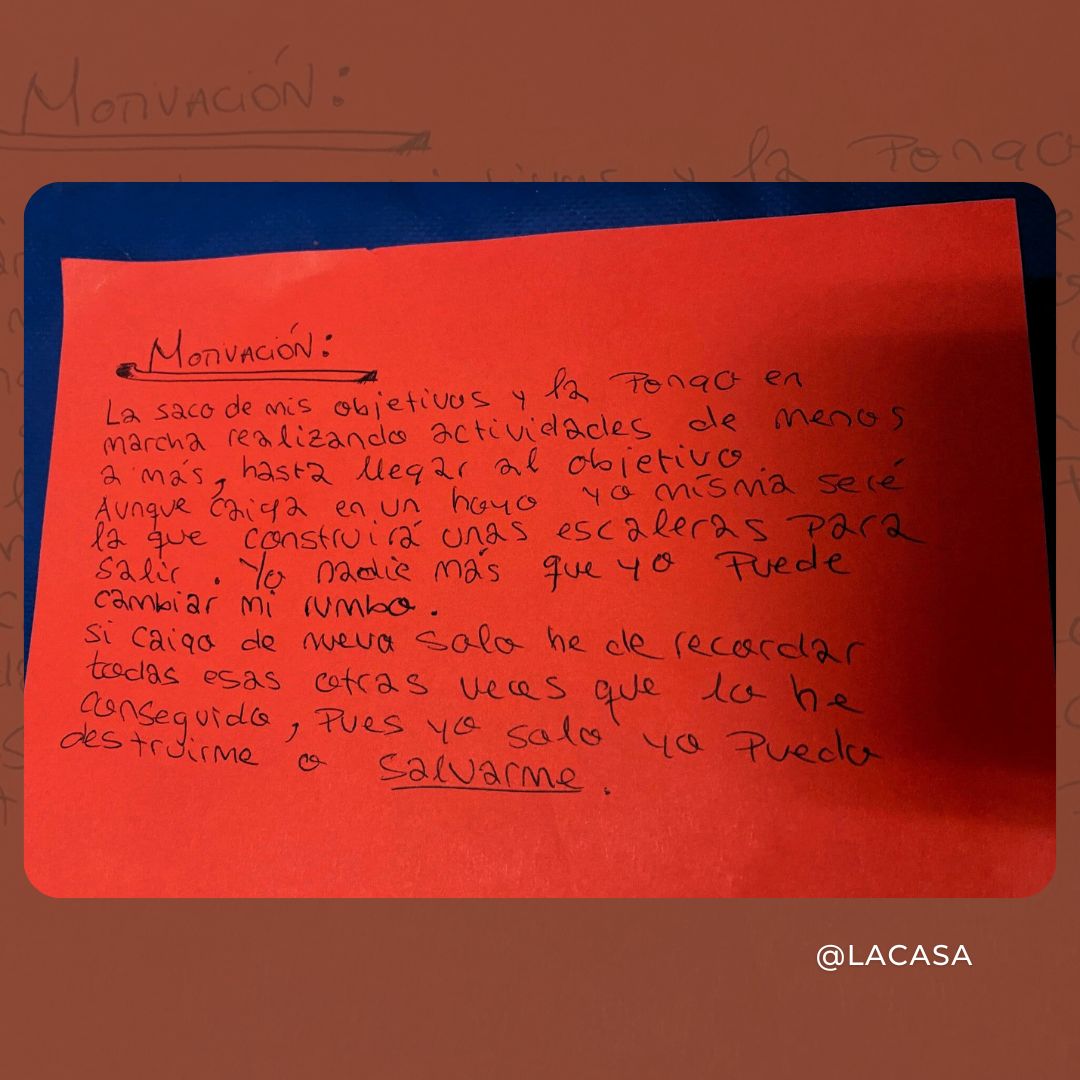 MOTIVACIÓN:
La saco de mis objetivos y la pongo en
marcha realizando actividades de menos
a más, hasta llegar al objetivo.
Aunque caiga en un hoyo yo misma seré
la que construirá unas escaleras para
salir. Yo nadie más que yo puede
cambiar mi rumbo.
si caigo de nuevo solo he de recordar
todas esas otras veces que lo he
conseguido, pues yo solo yo puedo
destruirme o salvarme.
@LACASA